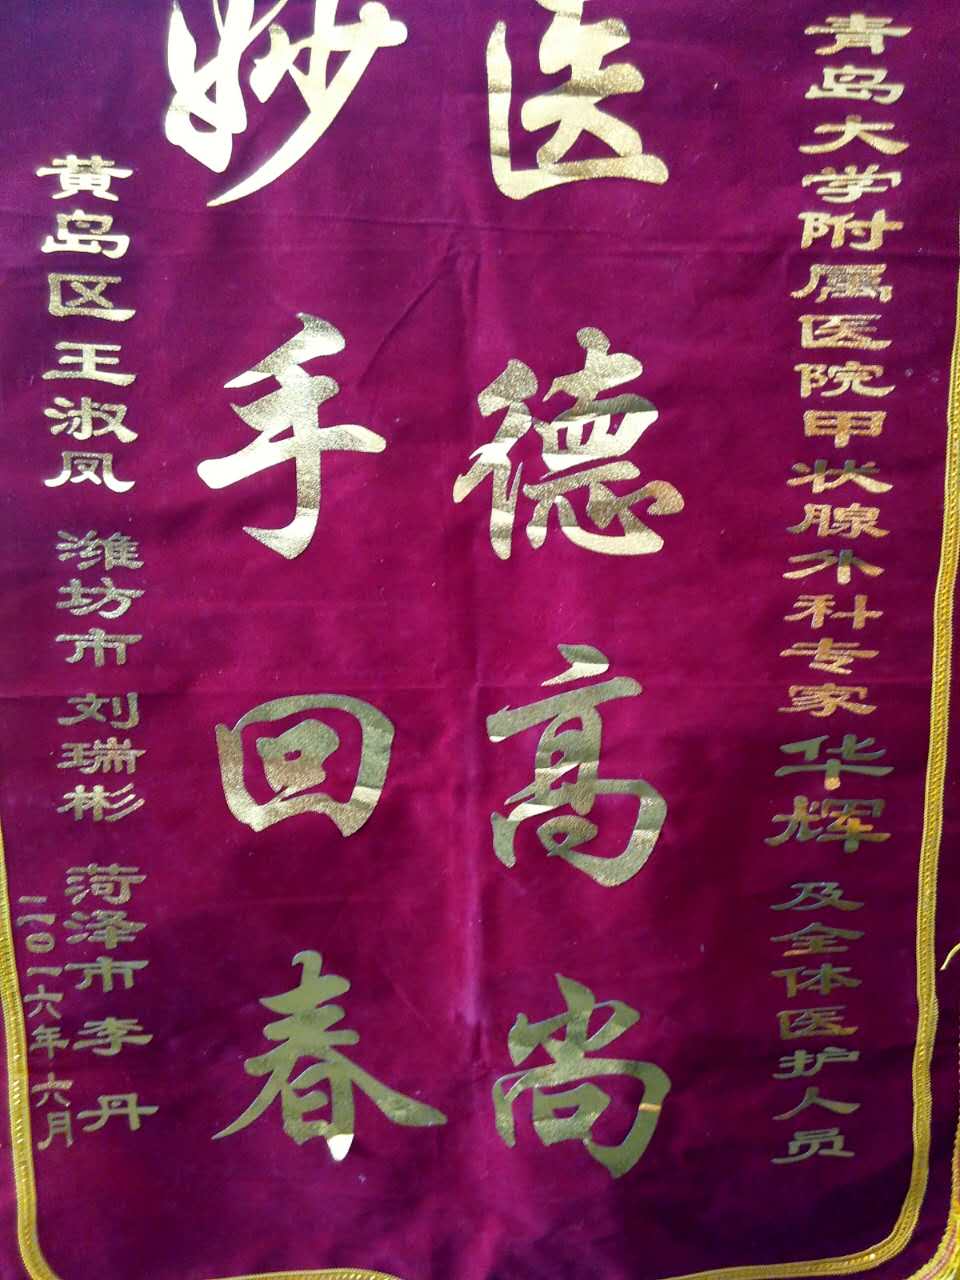 青岛大学附属医院甲状腺外科专家华辉 及全体医护人员
医德高尚
妙手回春
黄岛区王淑凤 潍坊市刘瑞彬 菏泽市李丹
二〇一六年六月